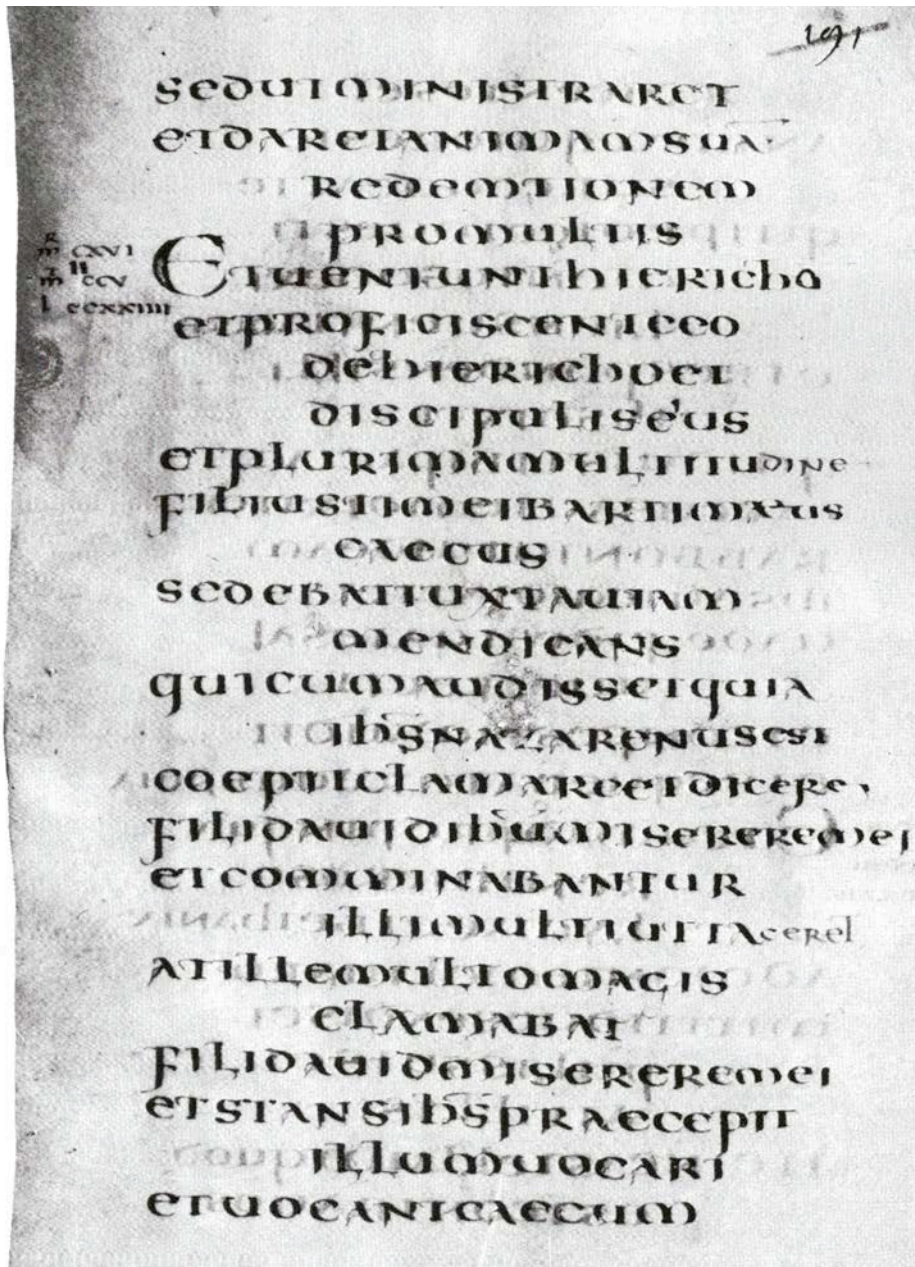 191
sedutministraret
etdaretanimamsua
redemtionem
promultis
mr cxvi
Etueniunthiericho
mt ccv
l ccxxiiii
etproficiscenteeo
dehierichoet
discipuliseius
etplurimamultitudine
filiustimeibartimaeus
caecus
sedebatiuxtauiam
mendicans
quicumaudissetquia
ihsnazarenusest
coepitclamareetdicere
filidauidihumisereremei
etcomminabantur
illimultiuttaceret
atillemultomagis
clamabat
filidauidmisereremei
etstansihspraecepit
illumuocari
etuocantcaecum